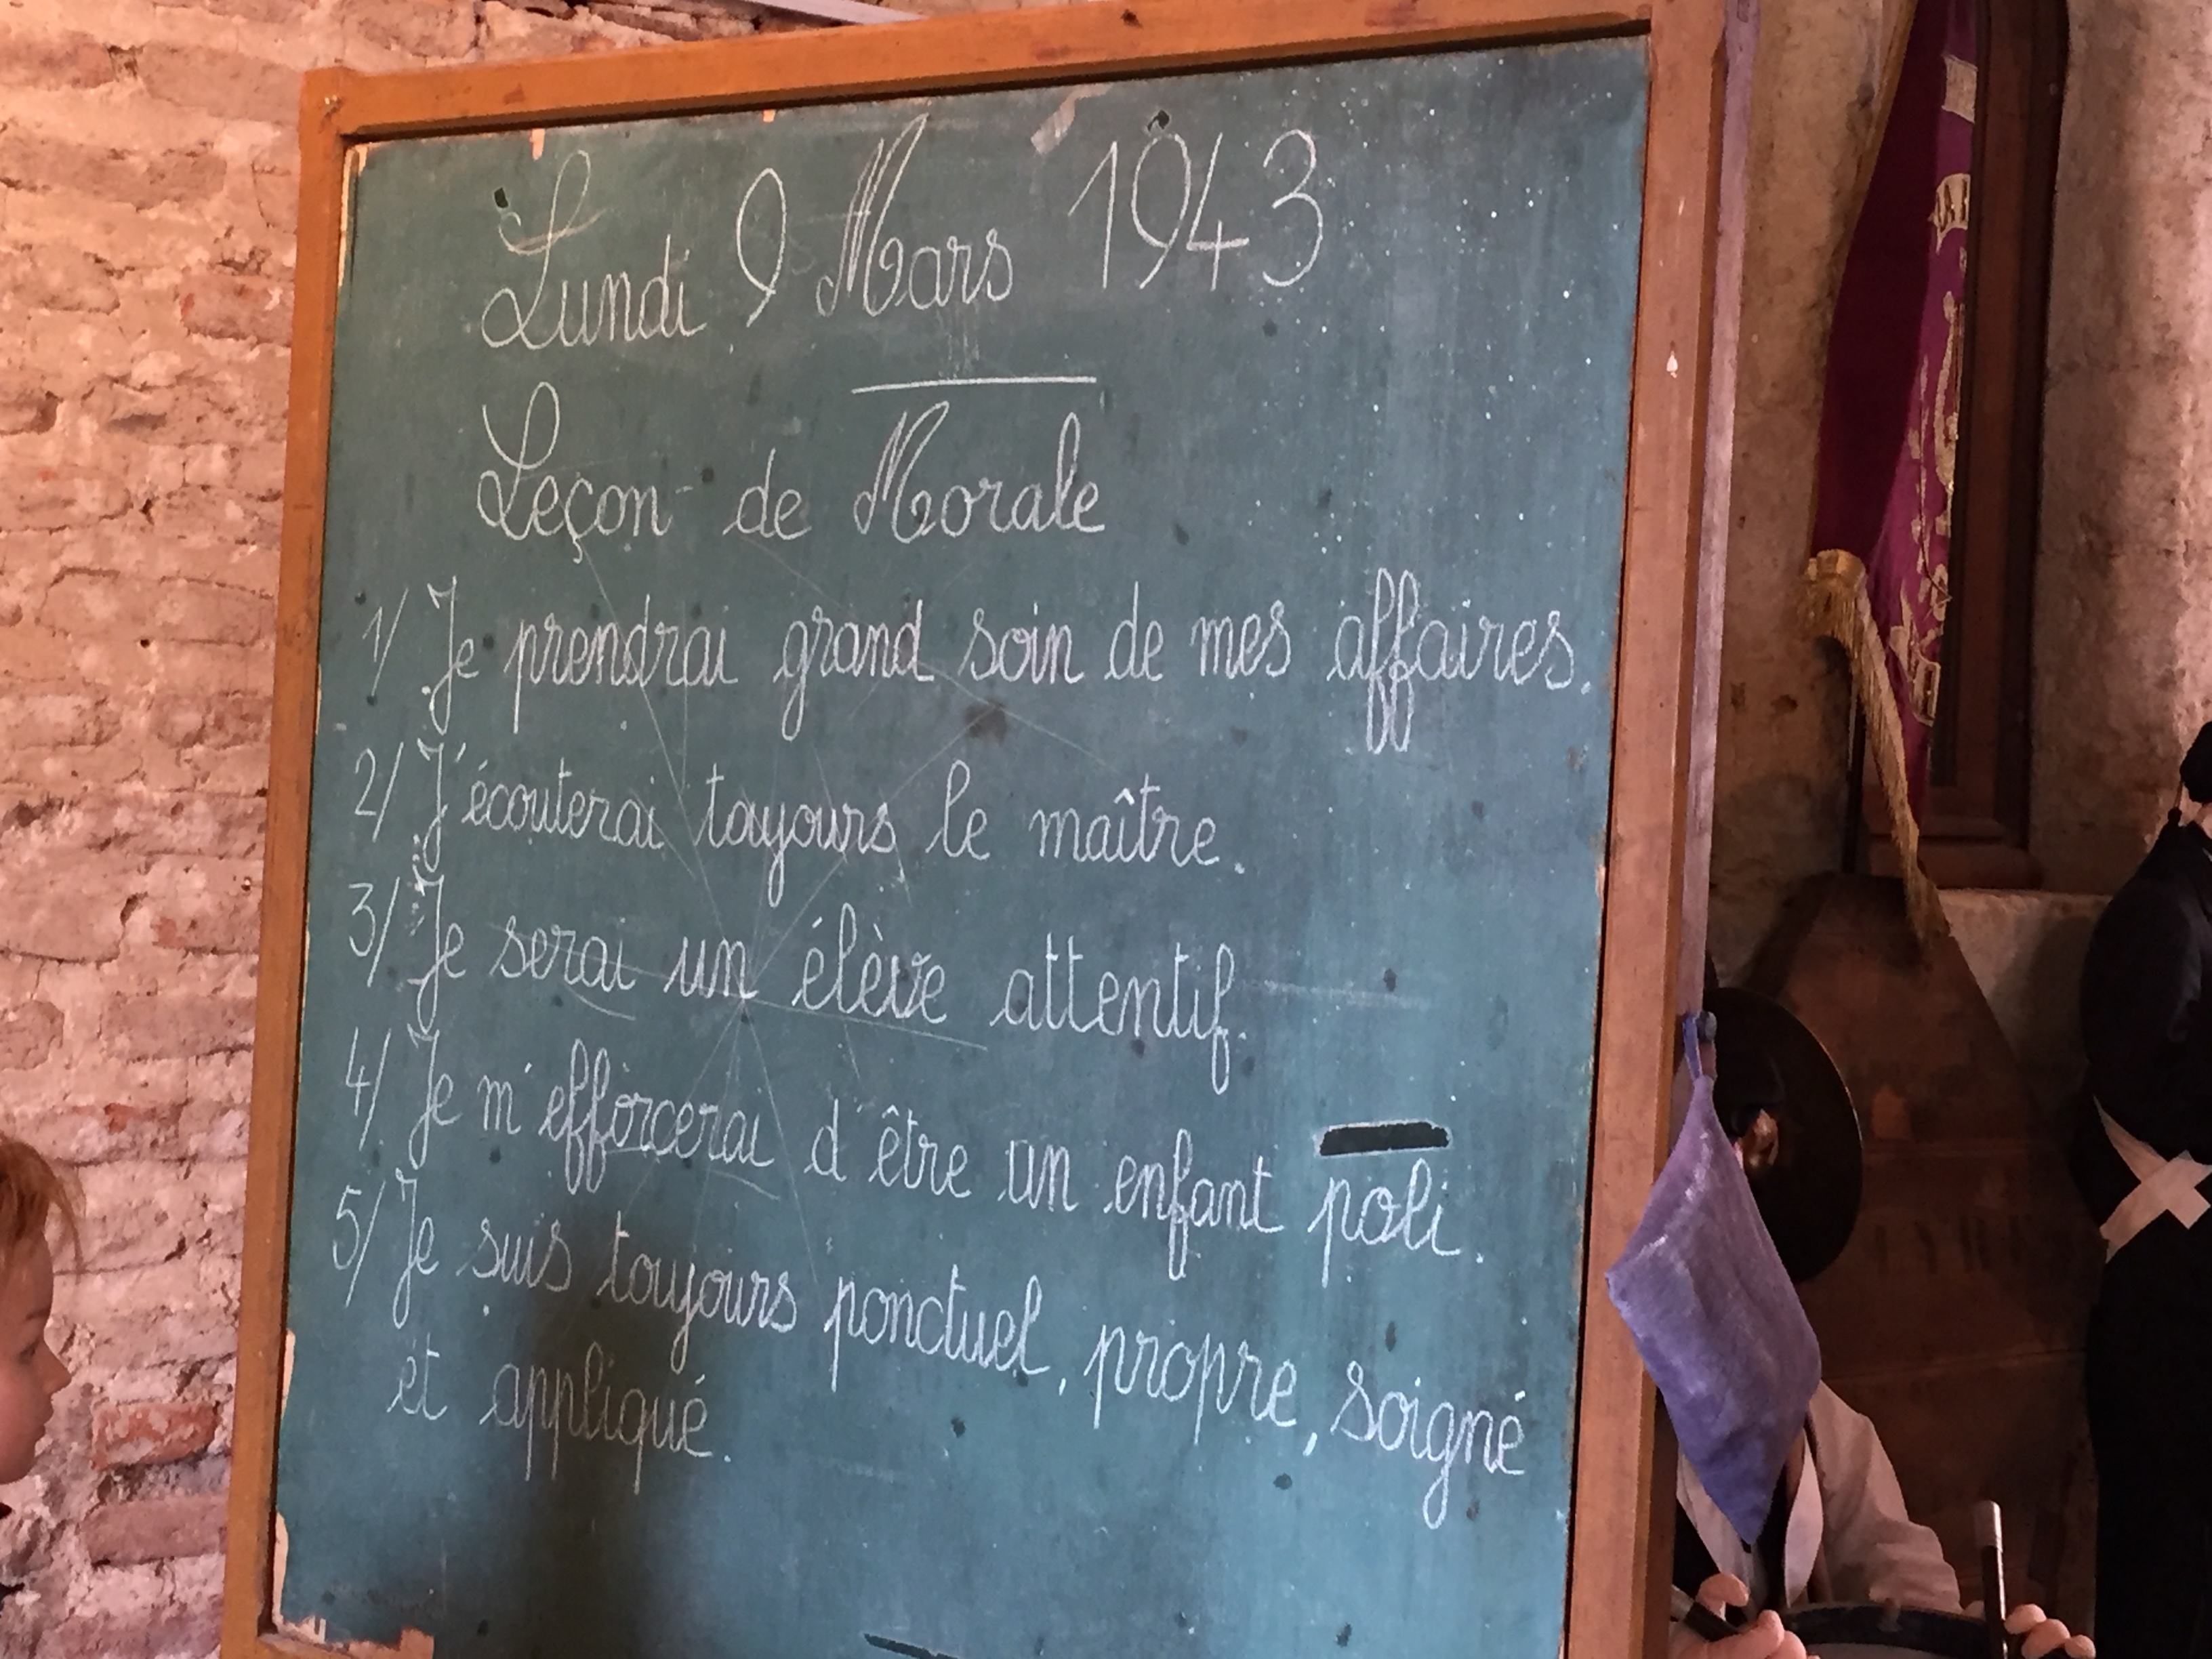 Lundi 9 Mars 1943
Leçon de Morale
1/ Je prendrai grand soin de mes affaires.
2/ J'écouterai toujours le maître.
3/ Je serai un élève attentif.
4/ Je m'efforcerai d'être un enfant poli.
5/ Je suis toujours ponctuel, propre, soigné
et appliqué.